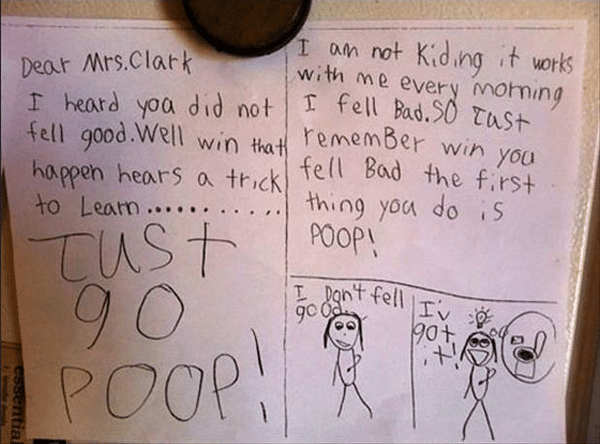 Dear Mrs.Clark
I heard you did not
fell good.Well win that
happen hears a trick
to Learn............
JUST
go
POOP!
I am not Kiding it works
with me every morning
I fell Bad.SO JUst
rememBer win you
fell Bad the first
thing you do is
POOP!
I Don't fell
good.
I'v
got
it!
essential